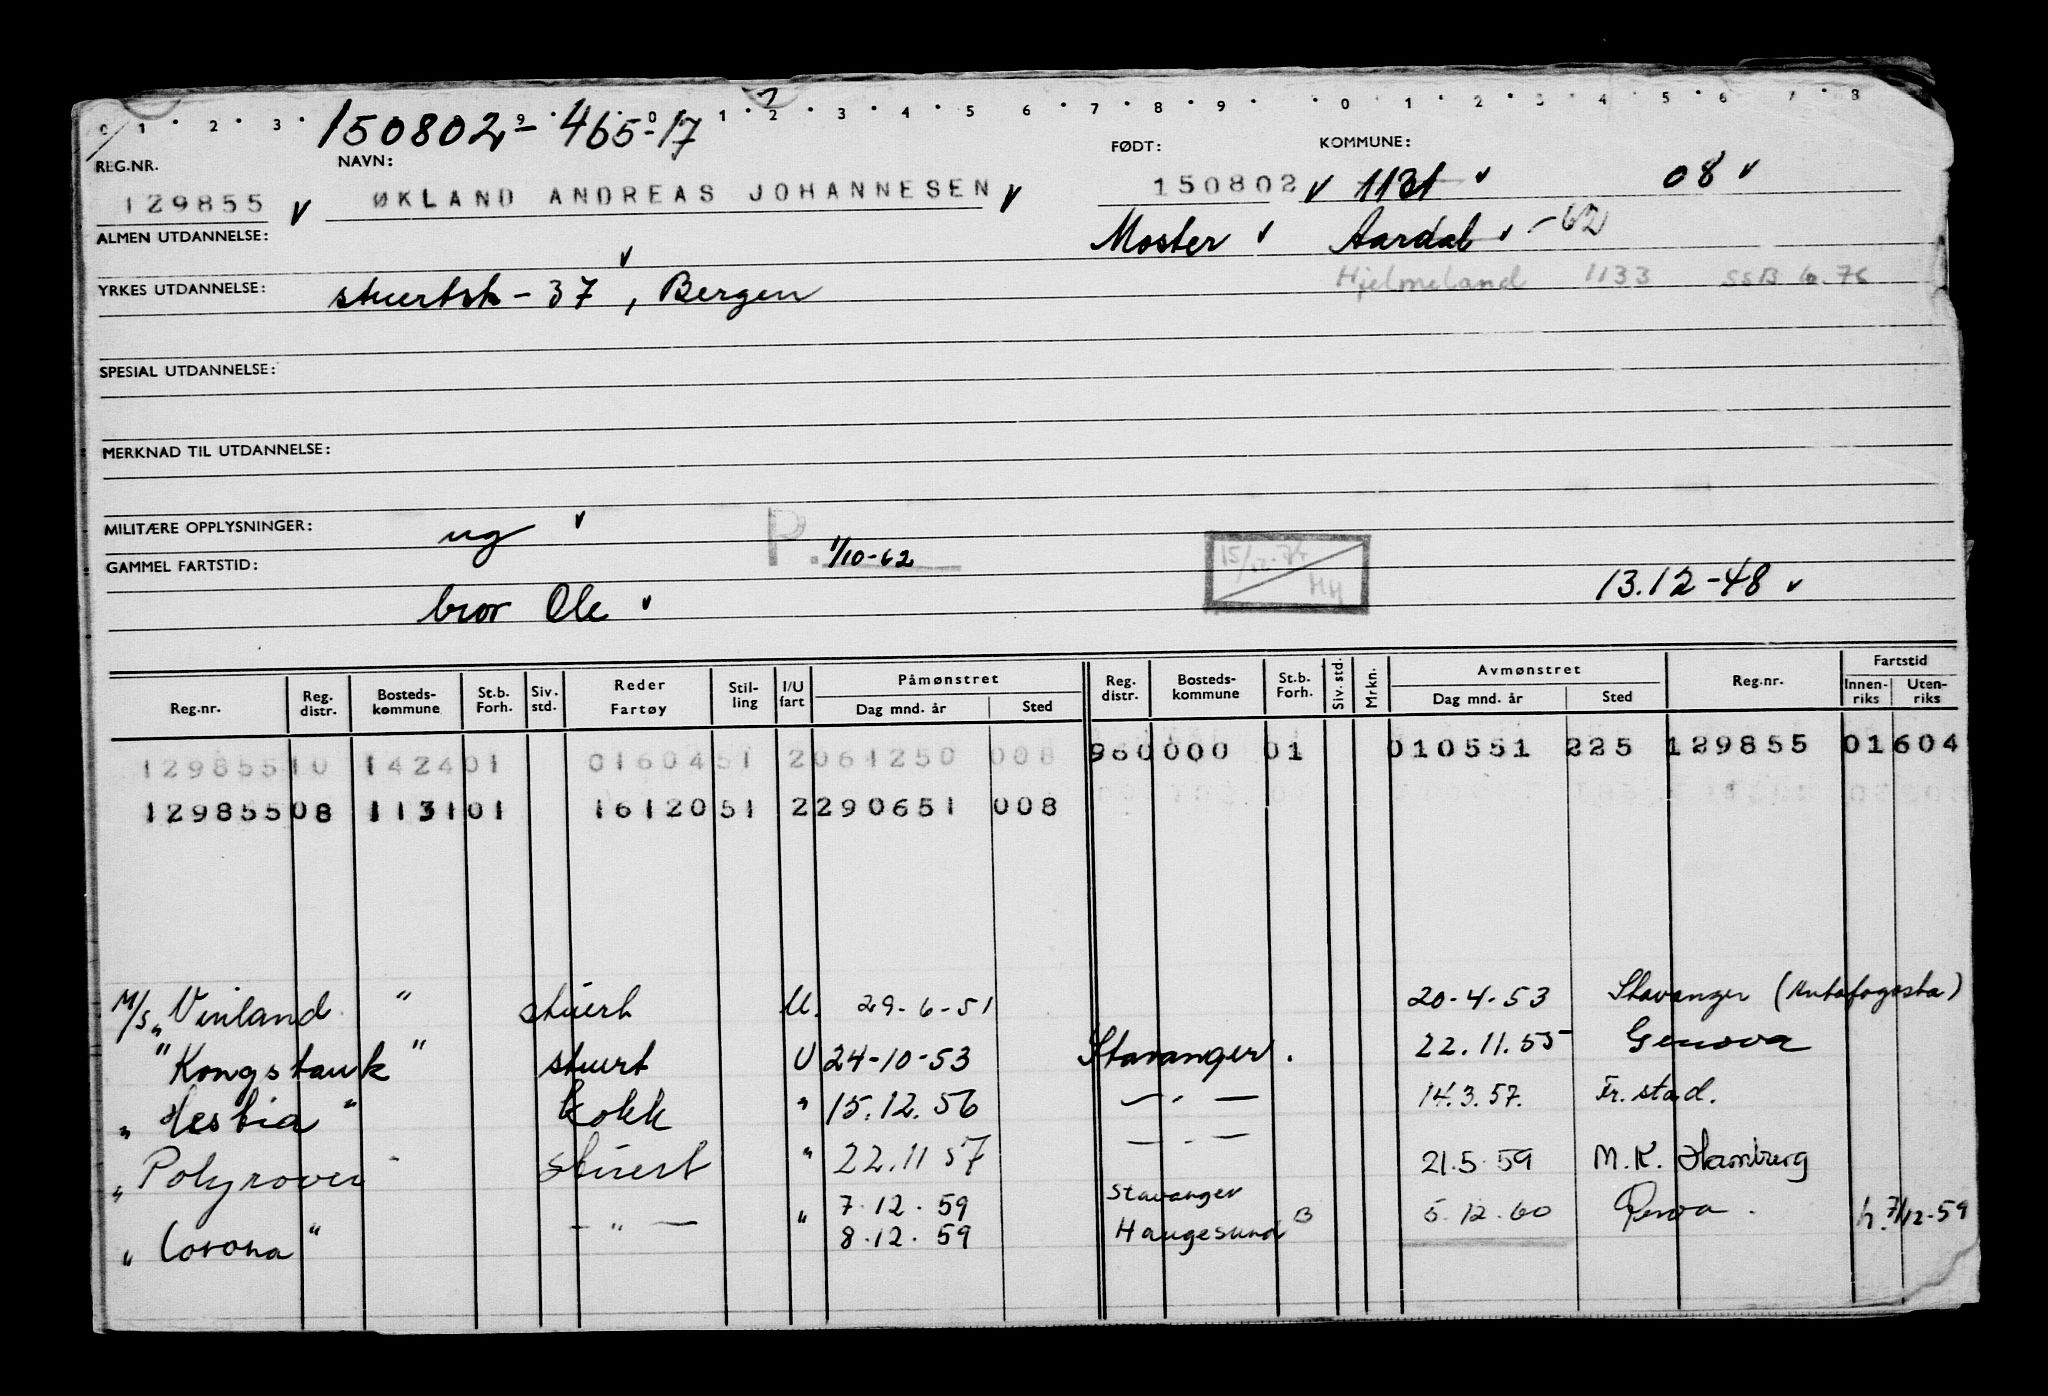 0 1 · 2 · 3 · 9 · 0 · 1 · 2 · 3 · 4 · 5 · 6 · 7 · 8 · 9 · · 0 · 1 · 2 · 3 · 4 · 5 · 6 · 7 · 8
150802 - 465-17
REG.NR. NAVN: FØDT: KOMMUNE:
129855 v ØKLAND ANDREAS JOHANNESEN v 150802 v 1131 v 08 v
ALMEN UTDANNELSE: Moster v Aardal v -62
YRKES UTDANNELSE: stuertsk - 37 v, Bergen Hjelmeland 1133 SSB 6.76
SPESIAL UTDANNELSE:
MERKNAD TIL UTDANNELSE:
MILITÆRE OPPLYSNINGER: ug v P. 1/10-62
GAMMEL FARTSTID: HH 13.12-48 v
bror Ole v
Reg.nr. Reg. distr. Bosteds- kommune St.b. Forh. Siv. std. Reder Fartøy Stil- ling I/U fart Påmønstret Dag mnd. år Sted Reg. distr. Bosteds- kommune St.b. Forh. Siv. std. Mrkn. Avmønstret Dag mnd. år Sted Reg.nr. Fartstid Innen- riks Uten- riks
129855 10 1424 01 01604 51 2 061250 008 960 000 01 010551 225 129855 01 604
129855 08 1131 01 16120 51 2 290651 008
M/S "Vinland " stuert U. 29-6-51 20-4-53 Stavanger (Antofagasta)
" Kongstank " stuert U 24-10-53 Stavanger. 22.11.55 Genova
" Hestia " kokk " 15.12.56 — " — 14.3.57. Fr.stad.
" Polyrover " stuert " 22.11 57 — " — 21.5.59 M.K. Hamburg
" Corona " — " — " 7.12.59 Stavanger 5.12.60 h. 7/12-59
8.12.59 Haugesund B